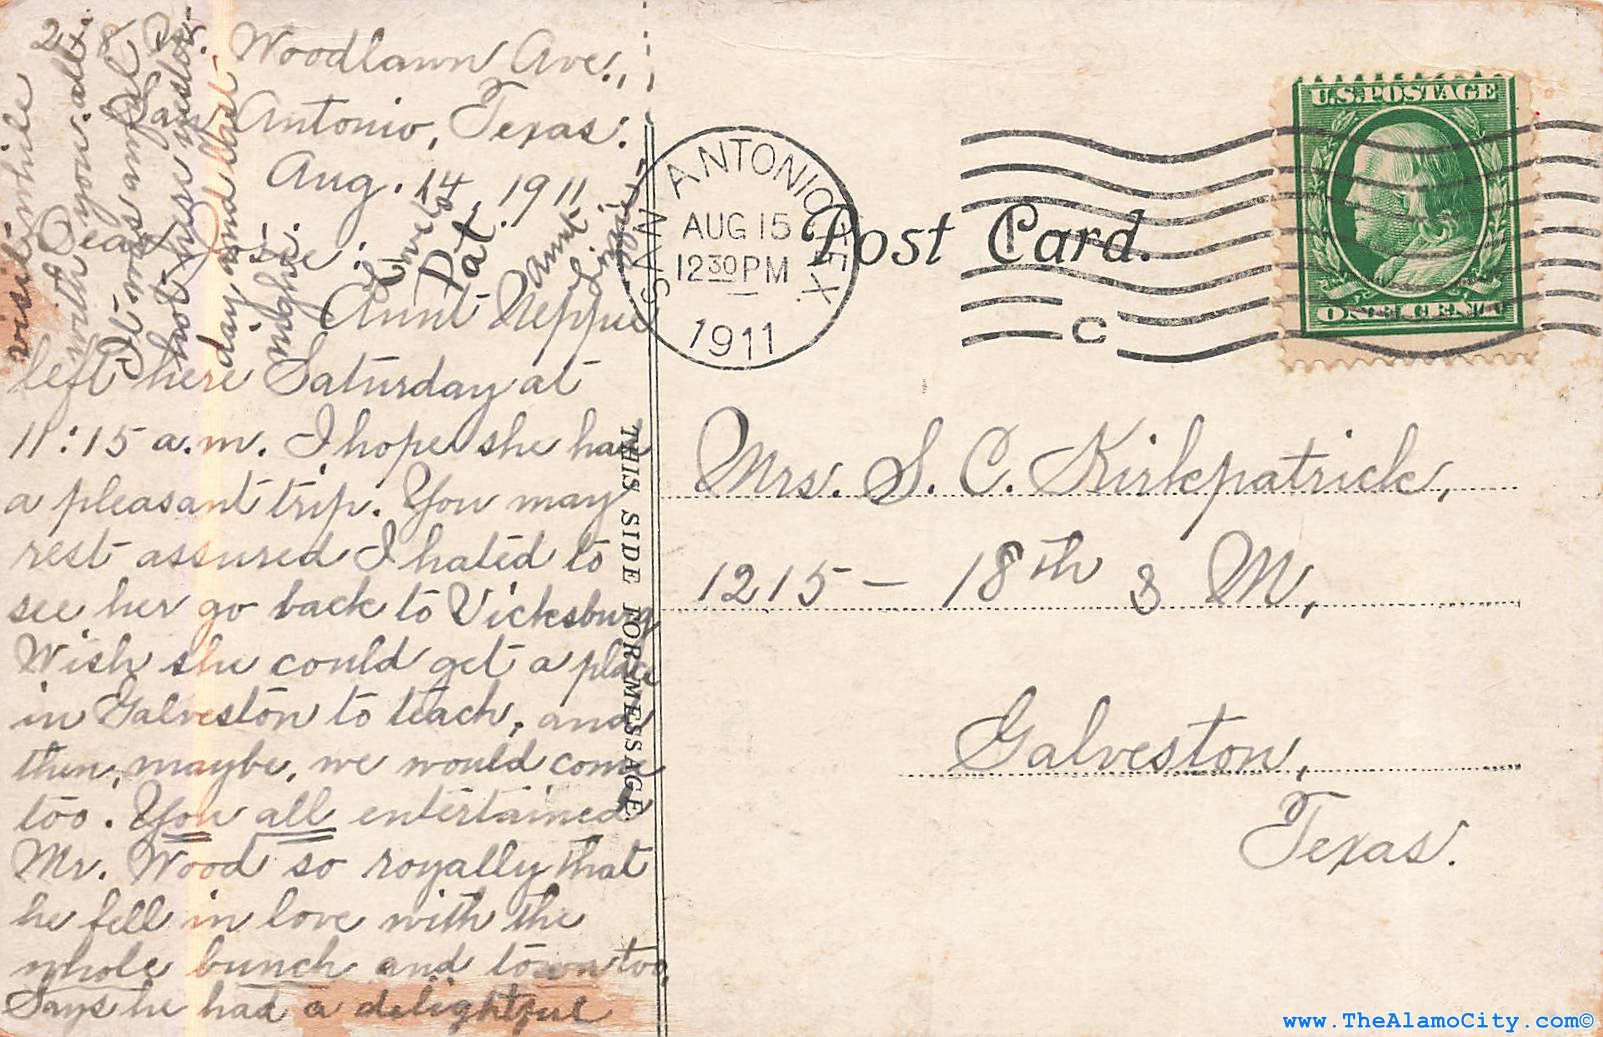 Woodlawn Ave.,
San Antonio, Texas.
Aug. 14, 1911.
Dear Rosie:
Aunt Neppie
left here Saturday at
11:15 a.m. I hope she had
a pleasant trip. You may
rest assured I hated to
see her go back to Vicksburg
Wish she could get a place
in Galveston to teach, and
then, maybe, we would come
too. You all entertained
Mr. Wood so royally that
he fell in love with the
whole bunch and town too,
Says he had a delightful
visit while
with you all.
It was awful
hot here yester-
day and last
night.
Love to
Pat.
Aunt
Lizzie
SAN ANTONIO, TEX.
AUG 15
12 30 PM
1911
C
U.S. POSTAGE
ONE CENT
Post Card.
THIS SIDE FOR MESSAGE
Mrs. S. C. Kirkpatrick,
1215 – 18th & M,
Galveston,
Texas.
www.TheAlamoCity.com©